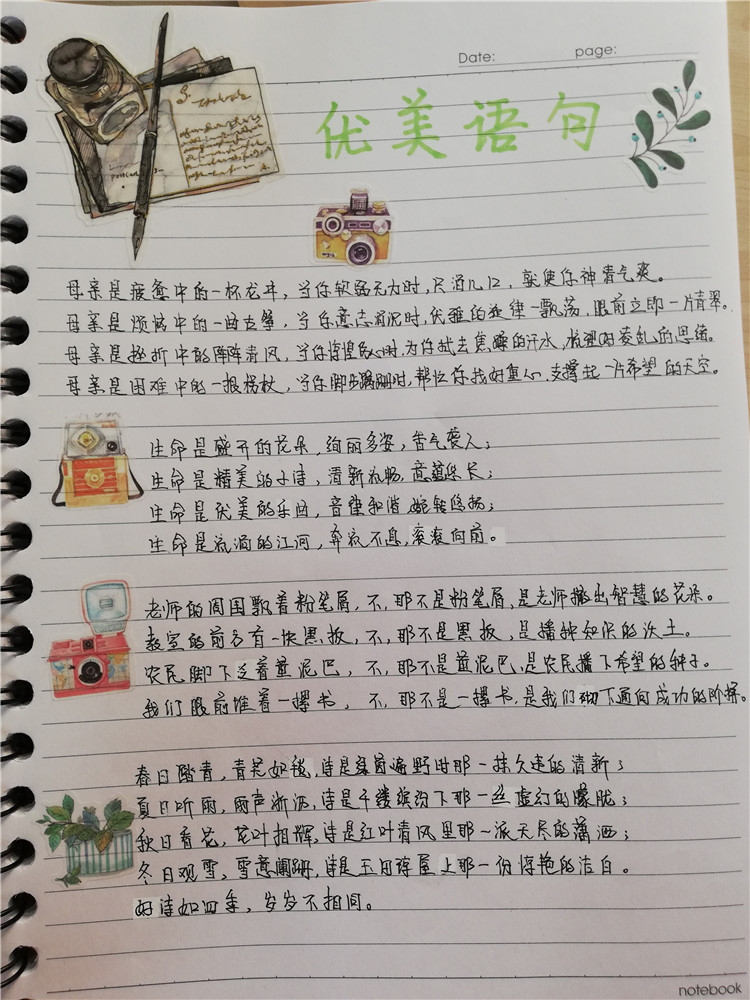 Date:
page:
优美语句
母亲是疲惫中的一杯龙井，当你软弱无力时，只消几口，就使你神清气爽。
母亲是烦恼中的一曲古筝，当你意志消沉时，优雅的旋律一飘荡，眼前立即一片青翠。
母亲是挫折中的阵阵清风，当你惊惶 时，为你拭去焦躁的汗水，梳理好凌乱的思绪。
母亲是困难中的一根拐杖，当你脚步蹒跚时，帮忙你找好重心，支撑起一片希望的天空。
生命是盛开的花朵，绚丽多姿，香气袭人；
生命是精美的小诗，清新流畅，意蕴悠长；
生命是优美的乐曲，音律和谐，婉转悠扬；
生命是流淌的江河，奔流不息，滚滚向前。
老师的周围飘着粉笔屑，不，那不是粉笔屑，是老师撒出智慧的花朵。
教室的前方有一块黑板，不，那不是黑板，是播种知识的沃土。
农民脚下乏着黄泥巴，不，那不是黄泥巴，是农民播下希望的种子。
我们眼前堆着一摞书，不，那不是一摞书，是我们砌下通向成功的阶梯。
春日踏青，青芜如毯，诗是绿茵遍野时那一抹久违的清新；
夏日听雨，雨声淅沥，诗是千缕缤纷下那一丝虚幻的朦胧；
秋日看花，花叶相辉，诗是红叶清风里那一派无尽的潇洒；
冬日观雪，雪意阑珊，诗是玉田琼屋上那一份惊艳的洁白。
好诗如四季，岁岁不相同。
notebook